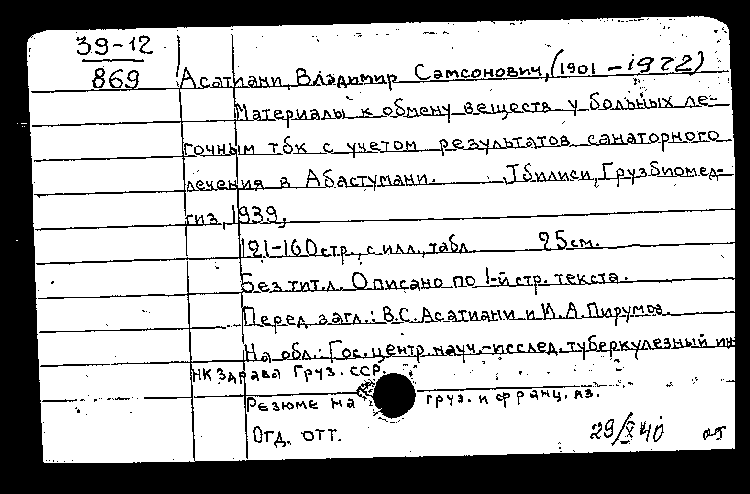 39-12
869
Асатиани, Владимир Самсонович, (1901 - 1972)
Материалы к обмену веществ у больных ле-
гочным тбк с учетом результатов санаторного
лечения в Абастумани. Тбилиси, Грузбиомед-
гиз, 1939,
121-160 стр., с илл., табл. 25 см.
Без тит. л. Описано по 1-й стр. текста.
Перед загл.: В.С. Асатиани и И.А. Пирумов.
На обл.: Гос. центр. науч.-исслед. туберкулезный ин
НКЗдрава Груз. ССР.
Резюме на груз. и франц. яз.
Отд. отт. 29/X 40